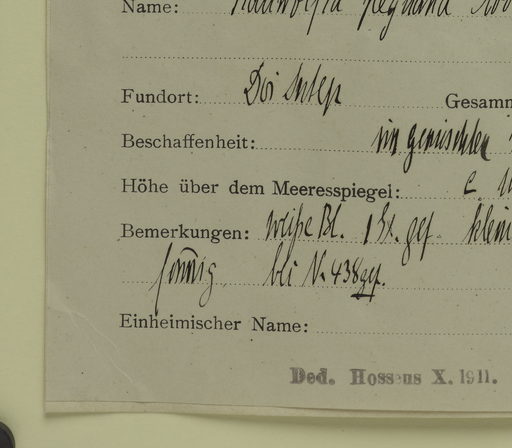 Name: Rauwolfia
Fundort: Doi Sutep Gesamm
Beschaffenheit: im gemischten
Höhe über dem Meeresspiegel: c.
Bemerkungen: weiße Bl. 1 St. gef. klein
sonnig bei N. 438 gef.
Einheimischer Name:
Ded. Hosseus X. 1911.